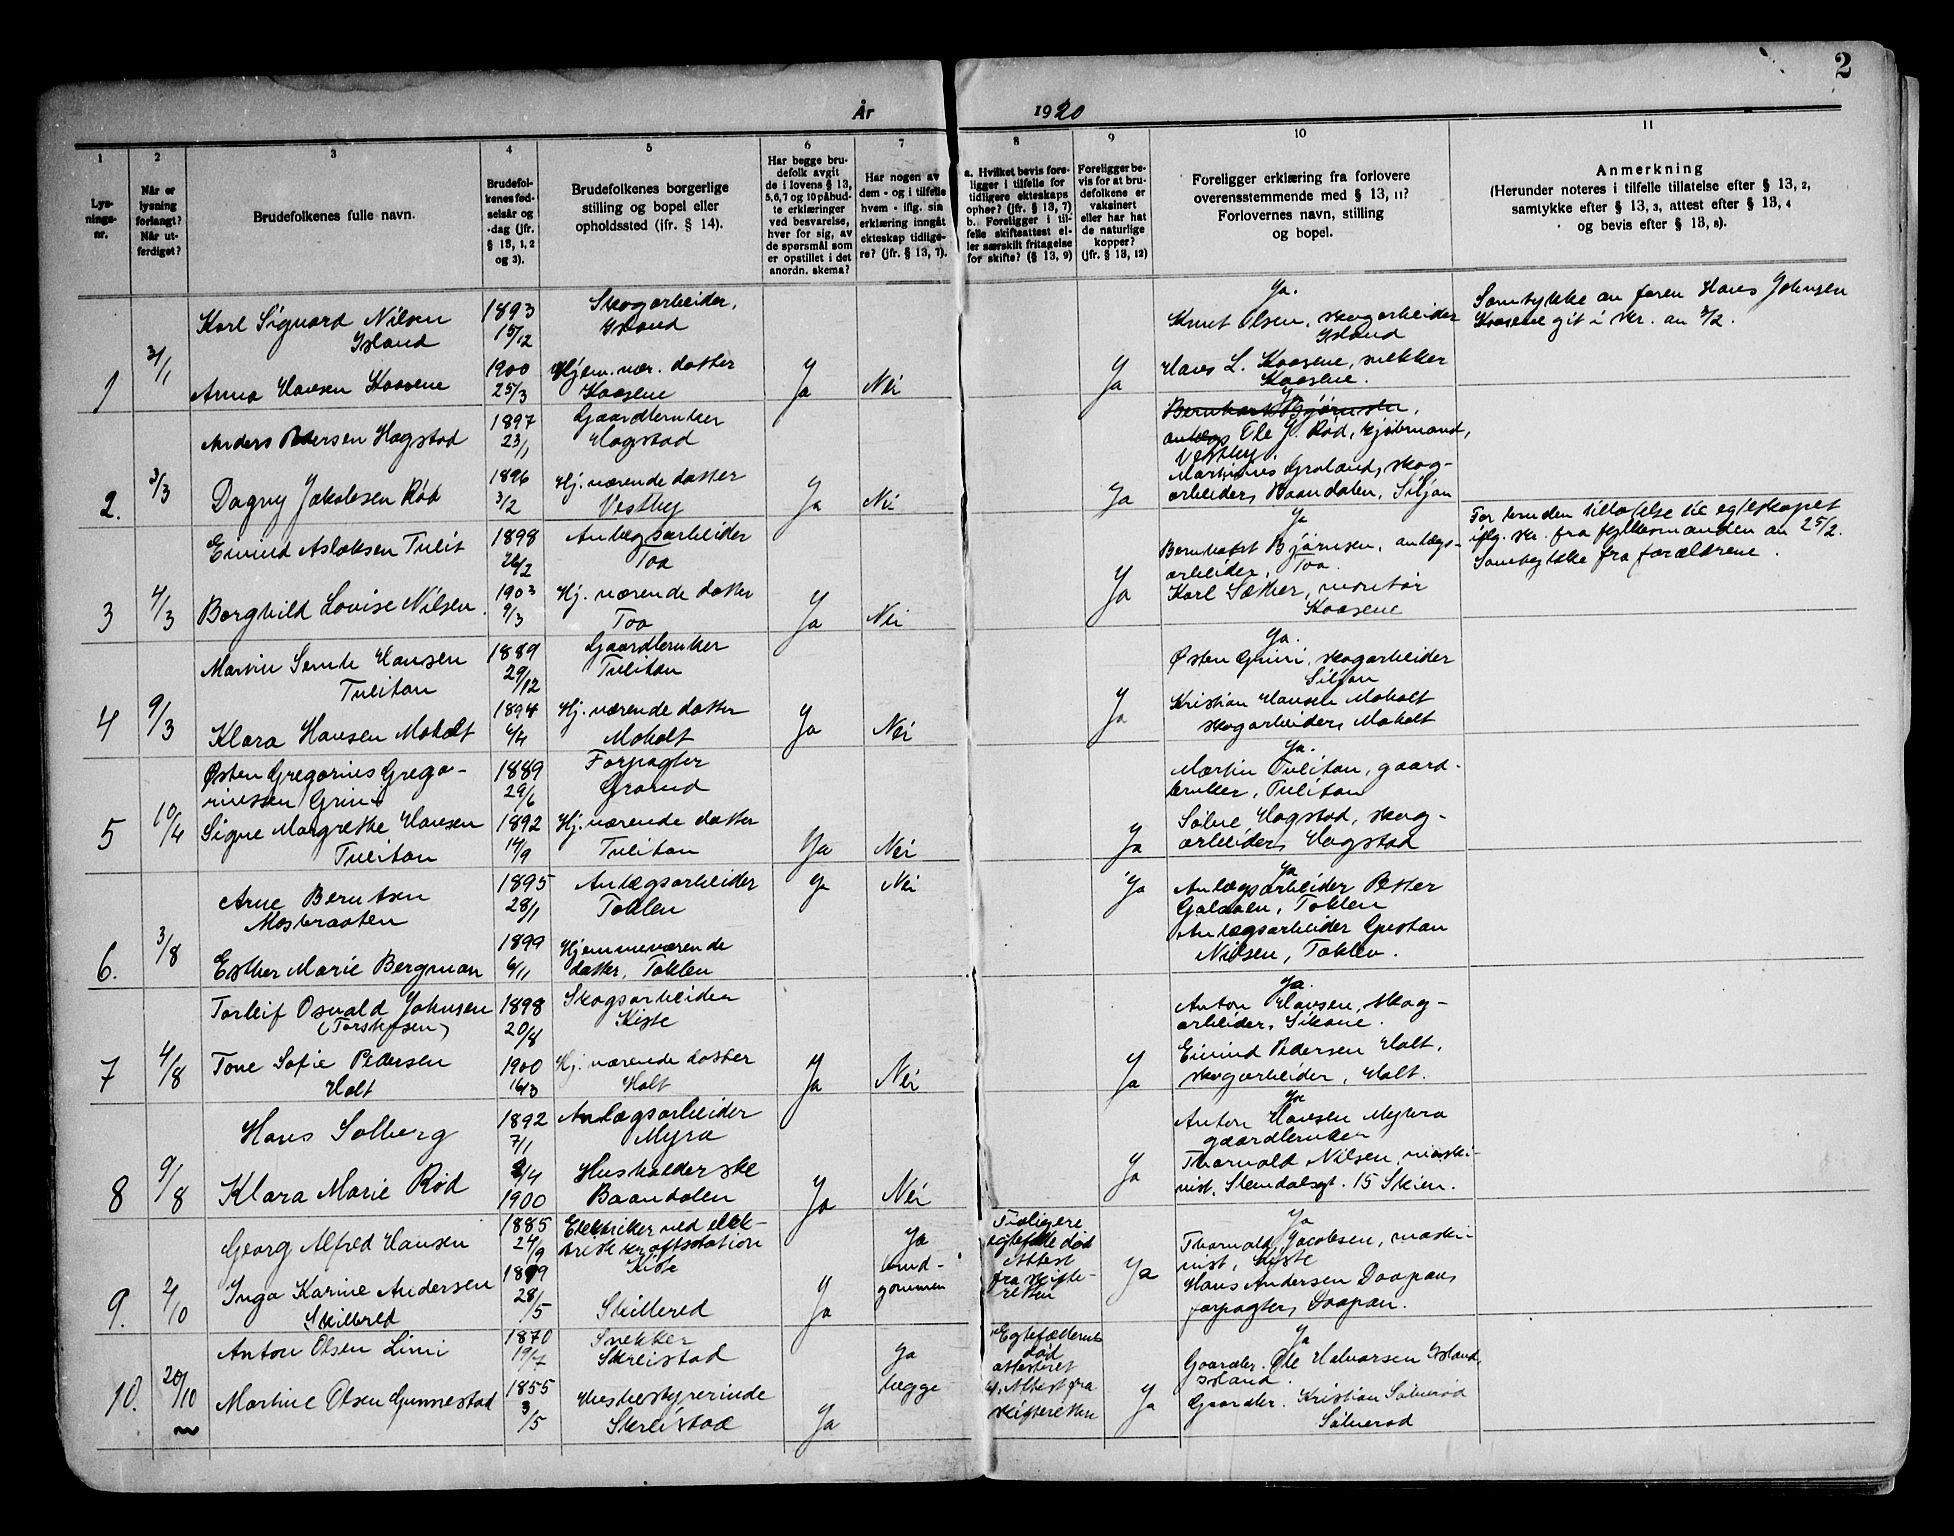 2
År 1920
1 2 3 4 5 6 7 8 9 10 11
Lysningsnr.
Når er lysning forlangt? Når utferdiget?
Brudefolkenes fulle navn.
Brudefolkenes fødselsår og -dag (jfr. § 13, 1, 2 og 3).
Brudefolkenes borgerlige stilling og bopel eller opholdssted (jfr. § 14).
Har begge brudefolk avgit de i lovens § 13, 5,6,7 og 10 påbudte erklæringer ved besvarelse, hver for sig, av de spørsmål som er opstillet i det anordn. skema?
Har nogen av dem - og i tilfelle hvem - iflg. sin erklæring inngåt ekteskap tidligere? (jfr. § 13, 7).
a. Hvilket bevis foreligger i tilfelle for tidligere ekteskaps ophør? (jfr. § 13, 7) b. Foreligger i tilfelle skifteattest eller særskilt fritagelse for skifte? (§ 13, 9)
Foreligger bevis for at brudefolkene er vaksinert eller har hat de naturlige kopper? (jfr. § 13, 12)
Foreligger erklæring fra forlovere overensstemmende med § 13, 11? Forlovernes navn, stilling og bopel.
Anmerkning (Herunder noteres i tilfelle tillatelse efter § 13, 2, samtykke efter § 13, 3, attest efter § 13, 4 og bevis efter § 13, 8).
1 3/1
Karl Sigvard Nilsen Island 1893 15/12 Skogarbeider, Island
Anna Hansen Kaasene 1900 25/3 Hjem. vær. datter Kaasene Ja Nei Ja
Ja. Knut Olsen, skogarbeider Island
Hans L. Kaasene, snekker Kaasene.
Samtykke av faren Hans Johnsen Kaasene git i skr. av 3/2.
2. 3/3
Anders Pedersen Hogstad 1897 23/1 Gaardbruker Hogstad
Dagny Jakobsen Rød 1896 3/2 Hj. værende datter Vestby Ja Nei Ja
Ja Bernhart Bjørnsen, anlægs Ole J. Rød, kjøbmand, Vestby.
Martinius Groland, skogarbeider, Baandalen, Siljan
3 4/3
Eivind Aslaksen Tveit 1898 26/2 Anlægsarbeider Toa
Borghild Lovise Nilsen. 1903 9/3 Hj. værende datter Toa Ja Nei Ja
Ja Bernhoft Bjørnsen, anlægsarbeider, Toa.
Karl Sæther, montør Kaasene
For bruden tillatelse til egteskapet iflg. skr. fra fylkesmanden av 25/2. Samtykke fra forældrene.
4 9/3
Marvin Semde Hansen Tveitan 1889 29/12 Gaardbruker Tveitan
Klara Hansen Moholt 1894 6/4 Hj. værende datter Moholt Ja Nei Ja
Ja. Østen Grini, skogarbeider Siljan
Kristian Hansen Moholt skogarbeider, Moholt
5 10/4
Østen Gregorius Gregoriussen Grini 1889 29/6 Forpagter Grorud
Signe Margrethe Hansen Tveitan 1892 14/9 Hj. værende datter Tveitan Ja Nei Ja
Ja. Martin Tveitan, gaardbruker, Tveitan
Sølve Hogstad, skogarbeider, Hogstad
6. 3/8
Arne Berntsen Mosbraaten 1895 28/1 Anlægsarbeider Toklev Ja Nei Ja
Esther Marie Bergman 1899 6/11 Hjemmeværende datter, Toklev
Ja Anlægsarbeider Petter Galaaen, Toklev
Anlægsarbeider Gustav Nilsen, Toklev.
7 4/8
Torleif Osvald Johnsen 1898 20/8 Skogsarbeider Kiste
Tove Sofie Pedersen Holt 1900 16/3 Hj. værende datter Holt Ja Nei Ja
Ja. Anton Hansen, skogarbeider,
Eivind Pedersen Holt, skogarbeider, Holt.
8 9/8
Hans Solberg 1892 7/1 Anlægsarbeider Myra
Klara Marie Rød 2/4 1900 Husholderske Baandalen Ja Nei Ja
Ja Anton Hansen Myhra gaardbruker
Thorvald Nilsen, maskinist, Stendalsgt. 15 Skien.
9. 2/10
Georg Alfred Hansen 1885 24/9 Elektriker ved elektrisk kraftstation Kiste
Inga Karine Andersen Skilbred 1899 28/5 Skilbred Ja
Ja brudgommen
Tidligere egtefelle død Attest fra skifteretten Ja
Ja Thorvald Jacobsen, maskinist, Kiste
Hans Andersen Daapan, forpagter, Daapan.
10. 20/10
Anton Olsen Limi 1870 19/7 Snekker Skreistad
Martine Olsen Gunnestad 1855 3/5 Husbestyrerinde Skreistad Ja
Ja begge
Egtefællernes død attesteret Attest fra skifteretten Ja
Ja Gaardbr. Ole Halvorsen Island, Island.
Gaardbr. Kristian Sølverød Sølverød